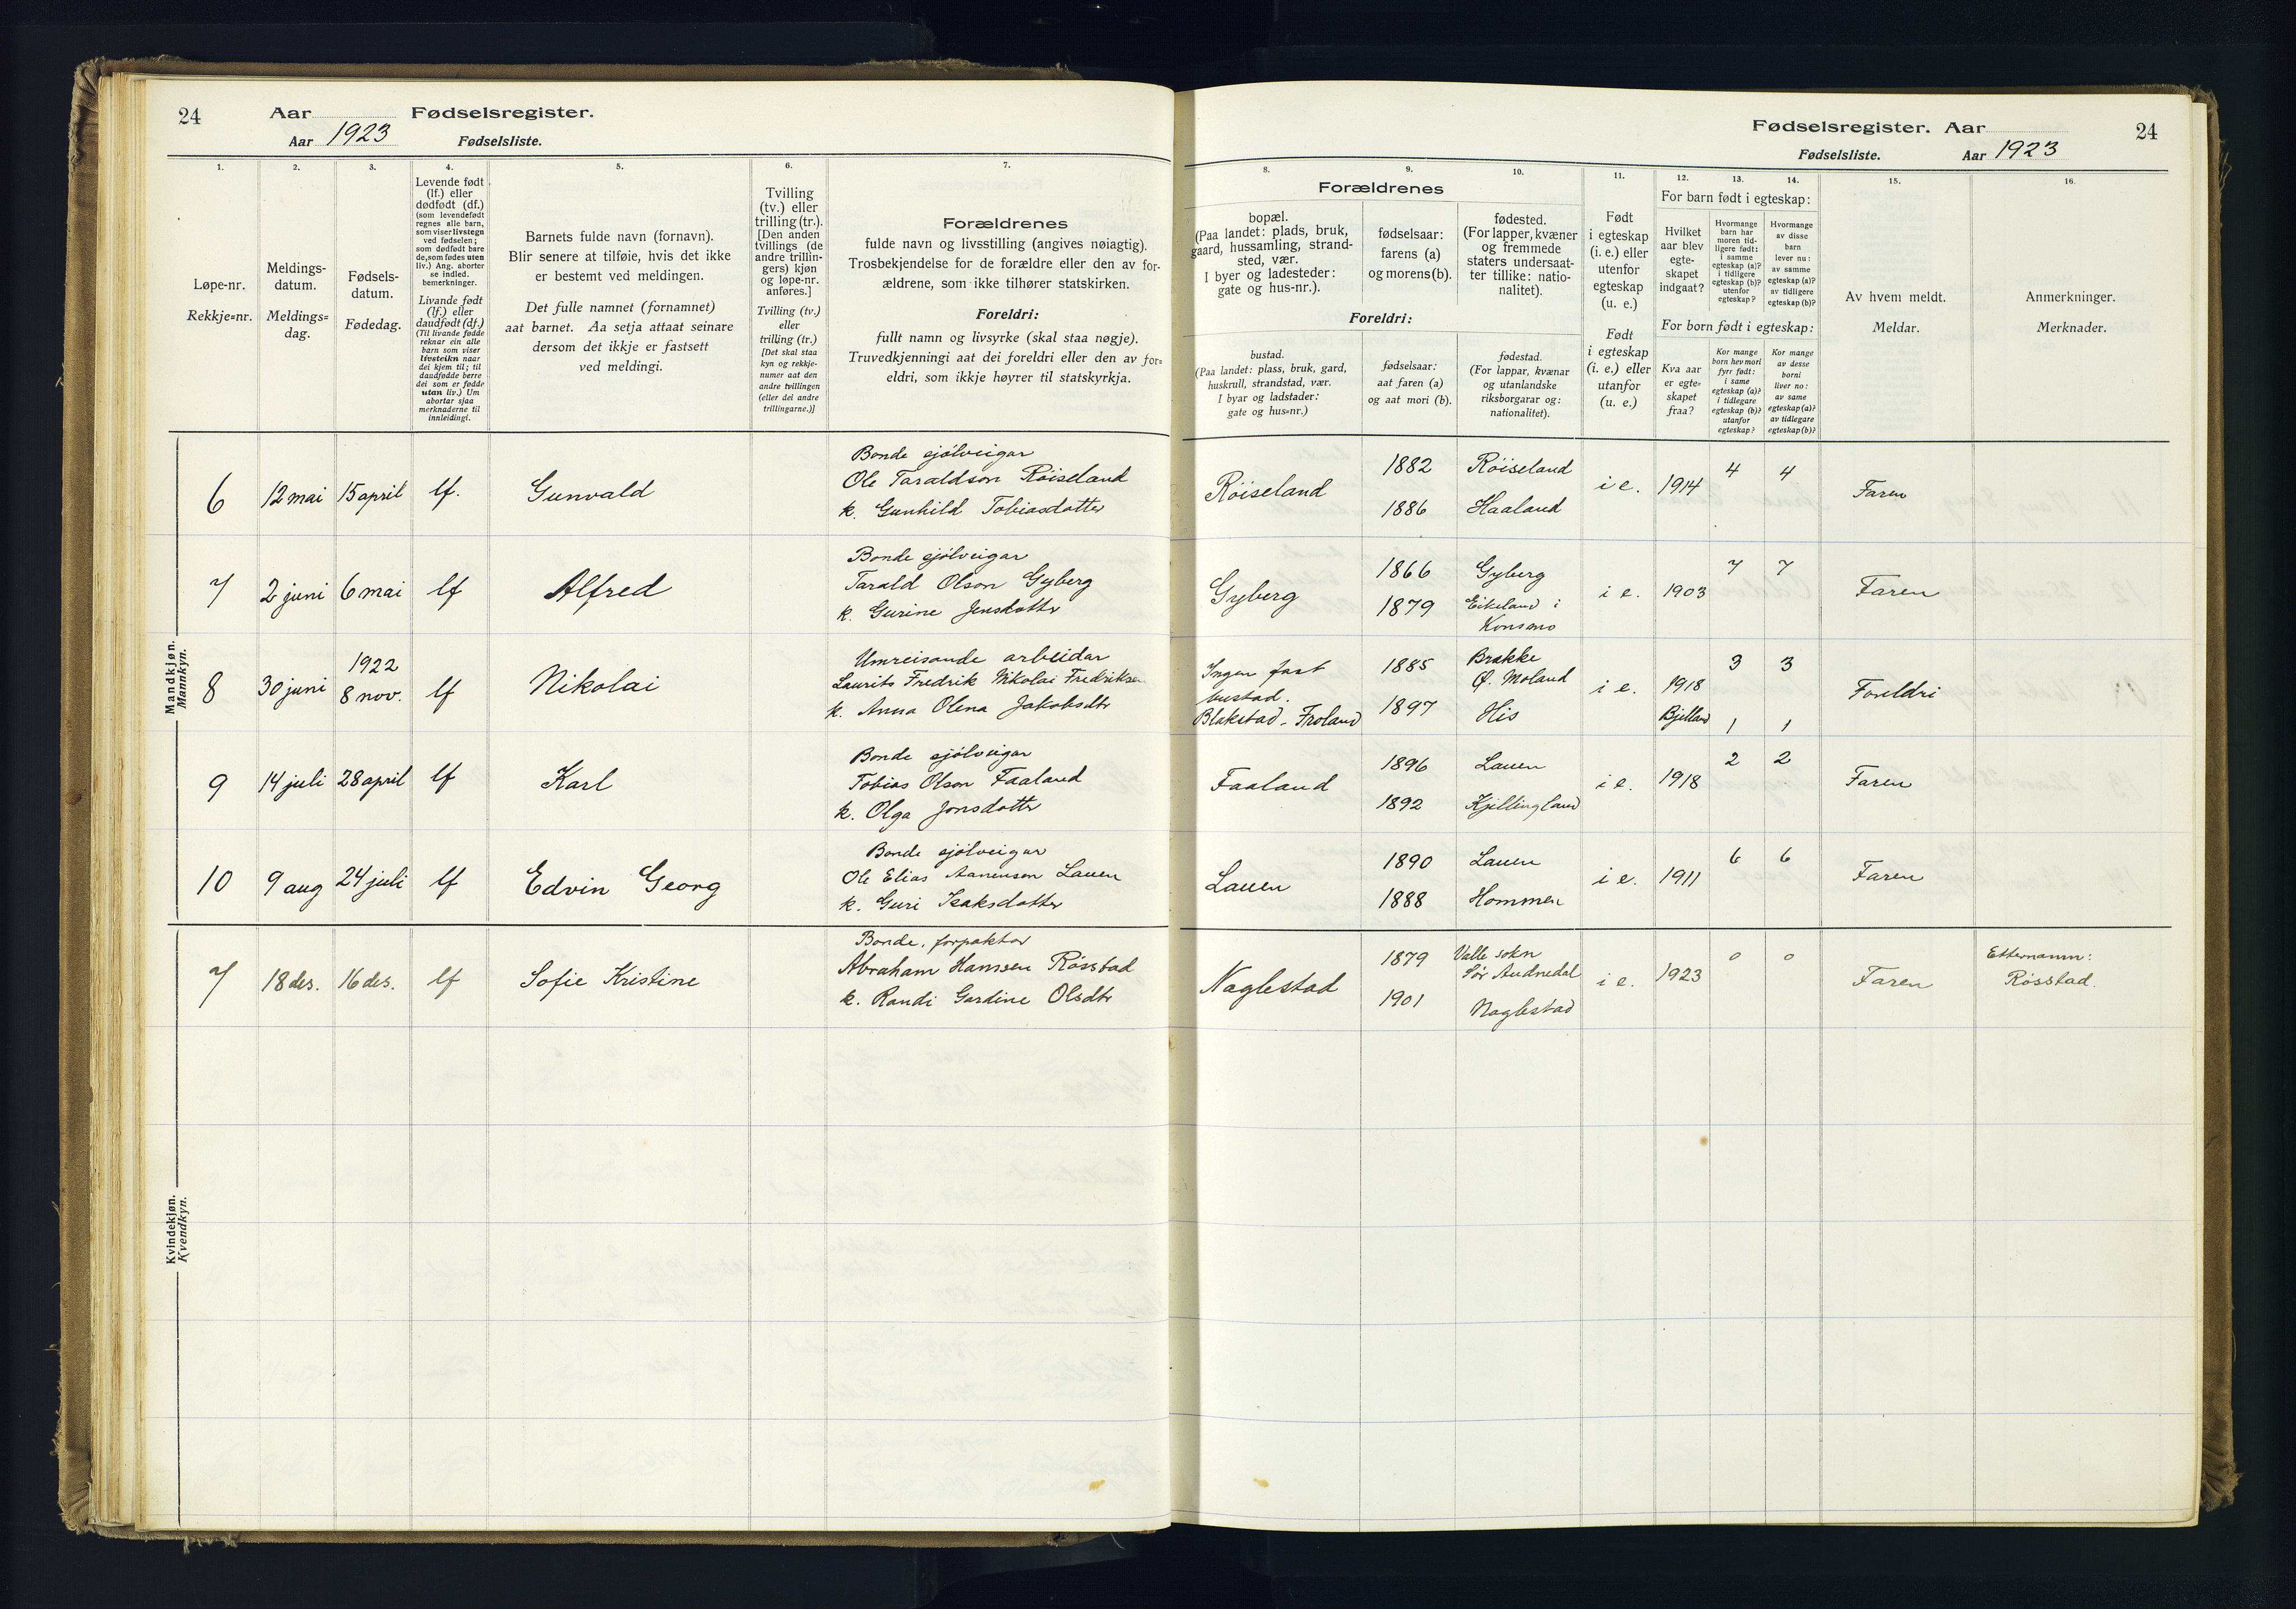 24 Aar Fødselsregister.
Aar 1923 Fødselsliste.
Fødselsregister. Aar 24
Fødselsliste. Aar 1923
1. 2. 3. 4. 5. 6. 7. 8. 9. 10. 11. 12. 13. 14. 15. 16.
Løpe-nr.
Rekkje=nr.
Meldings-
datum.
Meldings=
dag.
Fødsels-
datum.
Fødedag.
Levende født
(lf.) eller
dødfødt (df.)
(som levendefødt
regnes alle barn,
som viser livstegn
ved fødselen;
som dødfødt bare
de, som fødes uten
liv.) Ang. aborter
se indled.
bemerkninger.
Livande født
(lf.) eller
daudfødt (df.)
(Til livande fødde
reknar ein alle
barn som viser
livsteikn naar
dei kjem til; til
daudfødde berre
dei som er fødde
utan liv.) Um
abortar sjaa
merknaderne til
innleidingi.
Barnets fulde navn (fornavn).
Blir senere at tilføie, hvis det ikke
er bestemt ved meldingen.
Det fulle namnet (fornamnet)
aat barnet. Aa setja attaat seinare
dersom det ikkje er fastsett
ved meldingi.
Tvilling
(tv.) eller
trilling (tr.).
[Den anden
tvillings (de
andre trillin-
gers) kjøn
og løpe-nr.
anføres.]
Tvilling (tv.)
eller
trilling (tr.)
[Det skal staa
kyn og rekkje-
numer aat den
andre tvillingen
(eller dei andre
trillingarne.)]
Forældrenes
fulde navn og livsstilling (angives nøiagtig).
Trosbekjendelse for de forældre eller den av for-
ældrene, som ikke tilhører statskirken.
Foreldri:
fullt namn og livsyrke (skal staa nøgje).
Truvedkjenningi aat dei foreldri eller den av for=
eldri, som ikkje høyrer til statskyrkja.
Forældrenes
bopæl.
(Paa landet: plads, bruk,
gaard, hussamling, strand-
sted, vær.
I byer og ladesteder:
gate og hus-nr.).
fødselsaar:
farens (a)
og morens (b).
fødested.
(For lapper, kvæner
og fremmede
staters undersaat-
ter tillike: natio-
nalitet).
Foreldri:
bustad.
(Paa landet: plass, bruk, gard,
huskrull, strandstad, vær.
I byar og ladstader:
gate og hus=nr.)
fødselsaar:
aat faren (a)
og aat mori (b).
fødestad.
(For lappar, kvænar
og utanlandske
riksborgarar og:
nationalitet).
Født
i egteskap
(i. e.) eller
utenfor
egteskap
(u. e.)
Født
i egteskap
(i. e.) eller
utanfor
(u. e.)
For barn født i egteskap:
Hvilket
aar blev
egte-
skapet
indgaat?
Hvormange
barn har
moren tid-
ligere født:
i samme
egteskap (a)?
i tidligere
egteskap (b)?
utenfor
egteskap?
Hvormange
av disse
barn
lever nu:
av samme
egteskap (a)?
av tidligere
egteskap (b)?
For born født i egteskap:
Kva aar
er egte-
skapet
fraa?
Kor mange
born hev mori
fyrr født:
i same
egteskap (a)?
i tidlegare
egteskap (b)?
utanfor
egteskap?
Kor mange
av desse
borni
liver no:
av same
egteskap (a)?
av tidlegare
egteskap (b)?
Av hvem meldt.
Meldar.
Anmerkninger.
Merknader.
Mandkjøn.
Mannkyn.
Bonde sjølveigar
6 12 mai 15 april lf. Gunvald Ole Taraldson Røiseland
k. Gunhild Tobiasdotter
Røiseland 1882 Røiseland i e. 1914 4 4 Faren
1886 Haaland
Bonde sjølveigar
7 2 juni 6 mai lf Alfred Tarald Olson Gyberg
k. Gurine Jensdotter
Gyberg 1866 Gyberg i e. 1903 7 7 Faren
1879 Eikeland i
Konsmo
Umreisande arbeidar
8 30 juni 1922
8 nov. lf Nikolai Laurits Fredrik Nikolai Fredriksen
k. Anna Olena Jakobsdtr
Ingen fast
bustad.
Blakstad - Froland
1885 Brække
Ø. Moland
1897 His
i e. 1918
Bjelland
3 3
1 1
Foreldri
Bonde sjølveigar
9 14 juli 28 april lf Karl Tobias Olson Faaland
k. Olga Jonsdotter
Faaland 1896 Lauen i e. 1918 2 2 Faren
1892 Kjellingland
Bonde sjølveigar
10 9 aug 24 juli lf Edvin Georg Ole Elias Aanensen Lauen
k. Guri Isaksdotter
Lauen 1890 Lauen i e. 1911 6 6 Faren
1888 Hommen
Kvindekjøn.
Kvendkyn.
Bonde, forpaktar
7 18 des. 16 des. lf Sofie Kristine Abraham Hansen Røsstad
k. Randi Gardine Olsdtr
Naglestad 1879 Valle sokn
Sør Audnedal
1901 Naglestad
i e. 1923 0 0 Faren
Etternamn:
Røsstad.